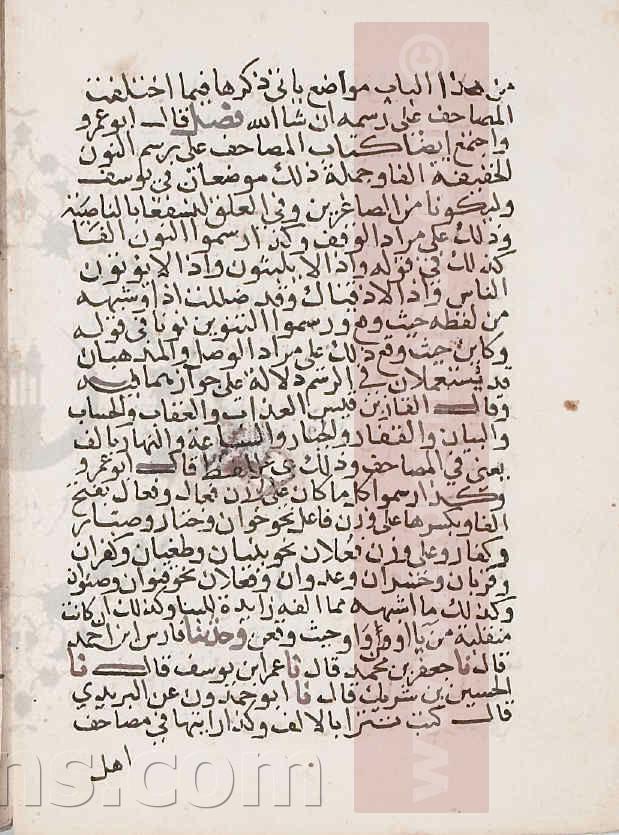 من هذا الباب مواضع ياتى ذكرها فيما اختلفت
المصاحف على رسمه ان شا الله فصل قال ابو عمرو
واجتمع ايضا كتاب المصاحف على رسم النون
الخفيفة الفا وجملة ذلك موضعان في يوسف
وليكونا من الصاغرين وفي العلق لنسفعا بالناصية
وذلك على مراد الوقف وكذا رسموا النون الفا
كذلك في قوله واذا لا يلبثون واذا لا يوتون
الناس واذا لاذقناك وقد ضللت اذا وشبهه
من لفظه حيث وقع ورسموا التنوين نونا في قوله
وكاين حيث وقع ذلك على مراد الوصل والمذهبان
قد يستعملان في الرسم دلالة على جوازهما فيه
وقال الغاز بن قيس العذاب والعقاب والحساب
والبيان والغفار والجبار والساعة والنهار بالف
يعنى في المصاحف وذلك على اللفظ قال ابو عمرو
وكذا رسموا كل ما كان على وزن فعال وفعال بفتح
الفا وبكسرها على وزن فاعل نحو خوان وختار وصبار
وكفار وعلى وزن فعلان نحو بنيان وطغيان وكفران
وقربان وخسران وعدوان وفعلان نحو قنوان وصنوان
وكذلك ما اشبهه مما الفه زايدة للبنا وكذلك ان كانت
منقلبة من يا او واو حيث وقعن وحدثنا فارس ابن احمد
قال نا جعفر بن محمد قال نا عمر ابن يوسف قال نا
الحسين بن شريك قال نا ابو حمدون عن اليزيدي
قال كتب تترا بالالف وكذا رايتها في مصاحف
اهل
www
ns.com